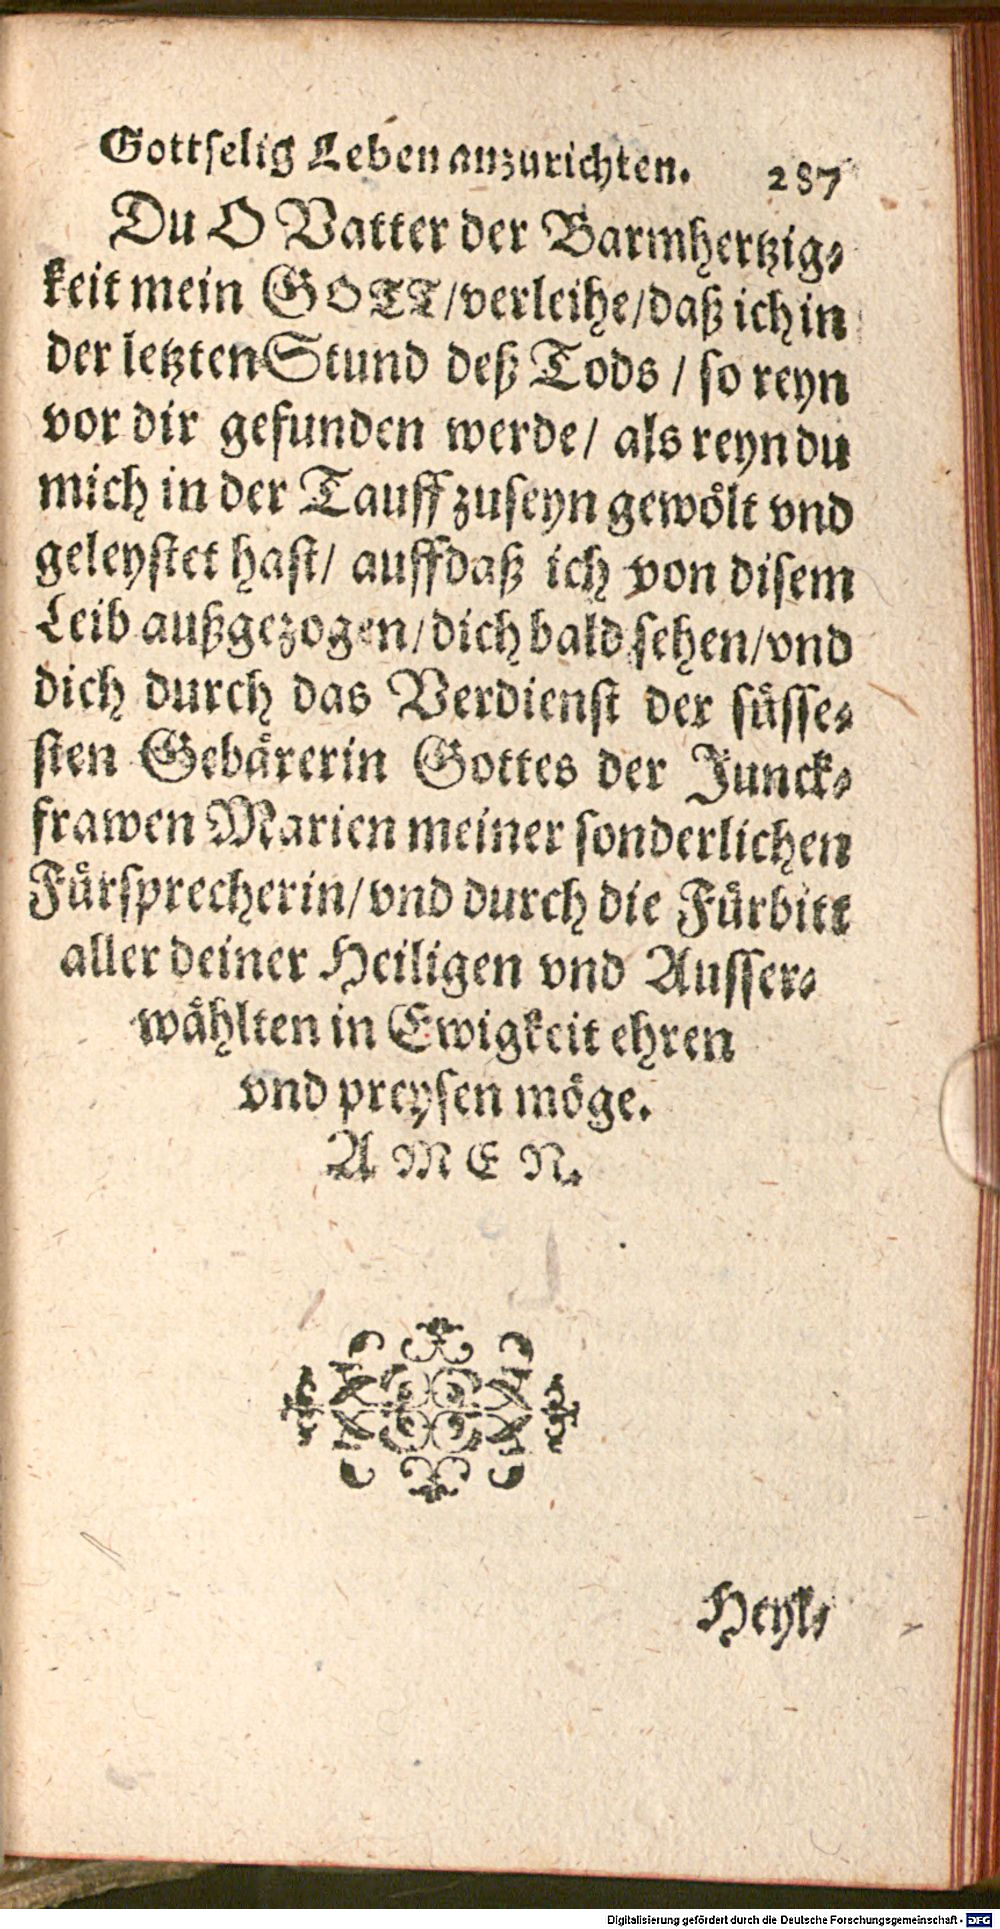 Gottselig Leben anzurichten. 287
Du O Vatter der Barmhertzig⸗
keit mein GOTT/verleihe/daß ich in
der letzten Stund deß Tods / so reyn
vor dir gefunden werde/ als reyn du
mich in der Tauff zuseyn gewoͤlt vnd
geleystet hast/ auffdaß ich von disem
Leib außgezogen/dich bald sehen/vnd
dich durch das Verdienst der suͤsse⸗
sten Gebaͤrerin Gottes der Junck⸗
frawen Marien meiner sonderlichen
Fuͤrsprecherin/vnd durch die Fuͤrbitt
aller deiner Heiligen vnd Ausser⸗
waͤhlten in Ewigkeit ehren
vnd preysen moͤge.
AMEN.
Heyl⸗
Digitalisierung gefördert durch die Deutsche Forschungsgemeinschaft - DFG